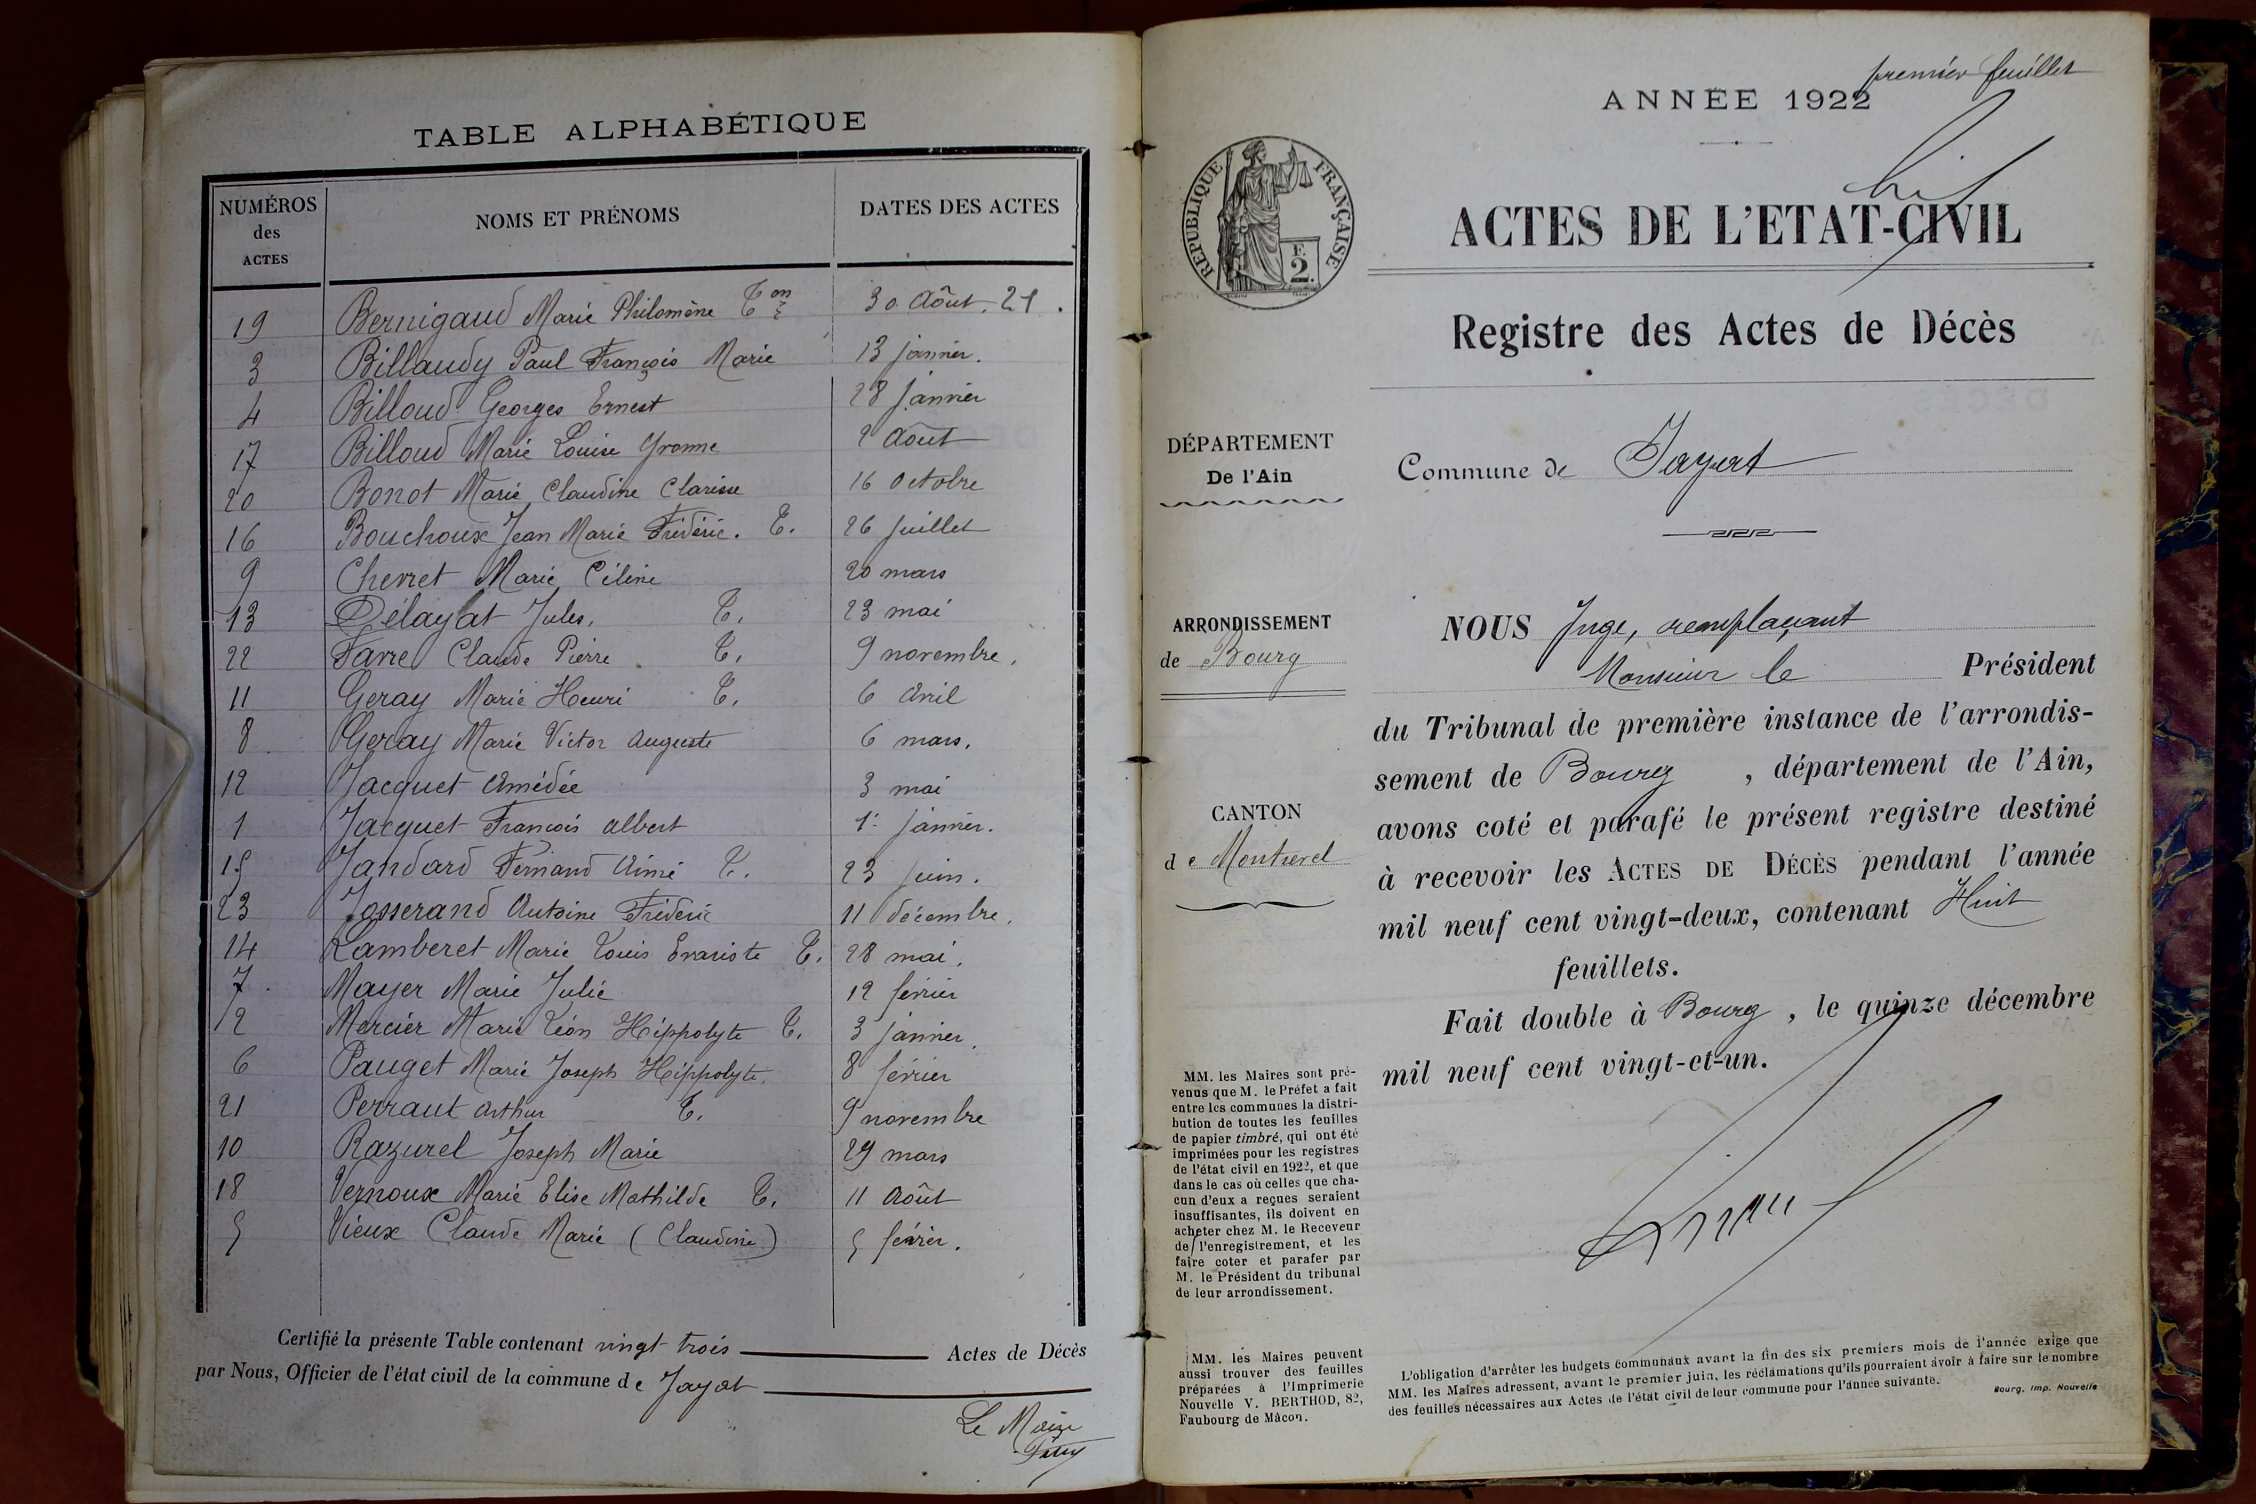 TABLE ALPHABÉTIQUE
NUMÉROS des ACTES | NOMS ET PRÉNOMS | DATES DES ACTES
19 Bernigaud Marie Philomène 30 Août. 21.
3 Billaudy Paul François Marie 13 janvier.
4 Billoud Georges Ernest 28 janvier
17 Billoud Marie Louise Yvonne 2 Août
20 Bonot Marie Claudine Clarisse 16 Octobre
16 Bouchoux Jean Marie Frédéric. T. 26 juillet
9 Chevret Marie Céline 20 mars
13 Délayat Jules, T. 23 mai
22 Favre Claude Pierre T. 9 novembre.
11 Geray Marie Henri T. 6 Avril
8 Geray Marie Victor Auguste 6 mars.
12 Jacquet Amédée 3 mai
1 Jacquet François Albert 1er janvier.
15 Jandard Fernand Aimé T. 23 juin.
23 Josserand Antoine Frédéric 11 décembre.
14 Lamberet Marie Louis Evariste T. 28 mai.
7 Mayer Marie Julie 12 février
2 Mercier Marie Léon Hippolyte T. 3 janvier.
6 Pauget Marie Joseph Hippolyte. 8 février
21 Perraut Arthur T. 9 novembre
10 Razurel Joseph Marie 29 mars
18 Vernoux Marie Elise Mathilde T. 11 Août
5 Vieux Claude Marie (Claudine) 5 février.
Certifié la présente Table contenant vingt trois Actes de Décès
par Nous, Officier de l'état civil de la commune de Jayat
Le Maire
premier feuillet
ANNÉE 1922
RÉPUBLIQUE FRANÇAISE
F. 2
ACTES DE L'ETAT-CIVIL
Registre des Actes de Décès
DÉPARTEMENT
De l'Ain
Commune de Jayat
ARRONDISSEMENT
de Bourg
CANTON
de Montrevel
NOUS Juge, remplaçant
Monsieur le Président
du Tribunal de première instance de l'arrondis-
sement de Bourg, département de l'Ain,
avons coté et parafé le présent registre destiné
à recevoir les ACTES DE DÉCÈS pendant l'année
mil neuf cent vingt-deux, contenant Huit
feuillets.
Fait double à Bourg, le quinze décembre
mil neuf cent vingt-et-un.
MM. les Maires sont pré-
venus que M. le Préfet a fait
entre les communes la distri-
bution de toutes les feuilles
de papier timbré, qui ont été
imprimées pour les registres
de l'état civil en 1922, et que
dans le cas où celles que cha-
cun d'eux a reçues seraient
insuffisantes, ils doivent en
acheter chez M. le Receveur
de l'enregistrement, et les
faire coter et parafer par
M. le Président du tribunal
de leur arrondissement.
MM. les Maires peuvent
aussi trouver des feuilles
préparées à l'Imprimerie
Nouvelle V. BERTHOD, 82,
Faubourg de Mâcon.
L'obligation d'arrêter les budgets communaux avant la fin des six premiers mois de l'année exige que
MM. les Maires adressent, avant le premier juin, les réclamations qu'ils pourraient avoir à faire sur le nombre
des feuilles nécessaires aux Actes de l'état civil de leur commune pour l'année suivante.
Bourg, Imp. Nouvelle